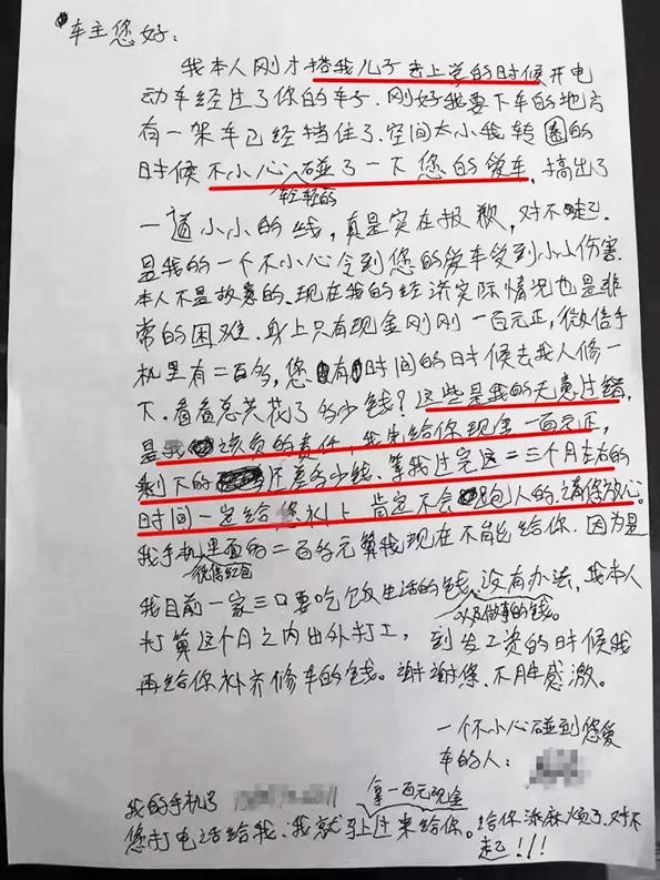 车主您好：
我本人刚才搭我儿子去上学的时候开电
动车经过了你的车子.刚好我要下车的地方
有一架车已经挡住了.空间太小我转圈的
时候不小心碰了一下您的爱车,搞出了
轻轻的
一道小小的线,真是实在报歉,对不起.
是我的一个不小心令到您的爱车受到小小伤害.
本人不是故意的.现在我的经济实际情况也是非
常的困难.身上只有现金刚刚一百元正,微信手
机里有二百多,您有时间的时候去找人修一
下.看看总共花了多少钱?这些是我的无意过错,
是我该负的责任,我先给你现金一百元正,
剩下的还差多少钱.等我过完这二三个月左右的
时间一定给您补上肯定不会跑人的.请你放心.
我手机里面的二百多元算我现在不能给你.因为是
微信红包
我目前一家三口要吃饭生活的钱,没有办法,我本人
以及做事的钱。
打算这个月之内出外打工,到发工资的时候我
再给你补齐修车的钱。谢谢您、不胜感激。
一个不小心碰到您爱
车的人:
我的手机号
拿一百元现金
您打电话给我.我就马上过来给你。给你添麻烦了.对不
起!!!